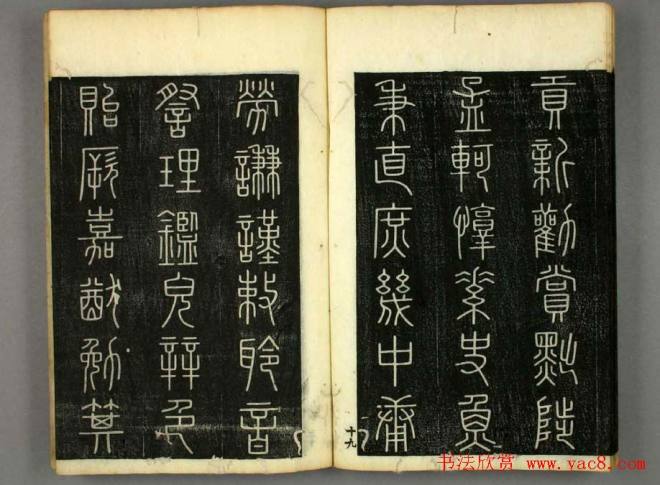 貢新勸賞黜陟
孟軻惇素史魚
秉直庶幾中庸
十九
勞謙謹敕聆音
詧理鑑皃辨色
貽厥嘉猷勉其
书法欣赏 www.yac8.com